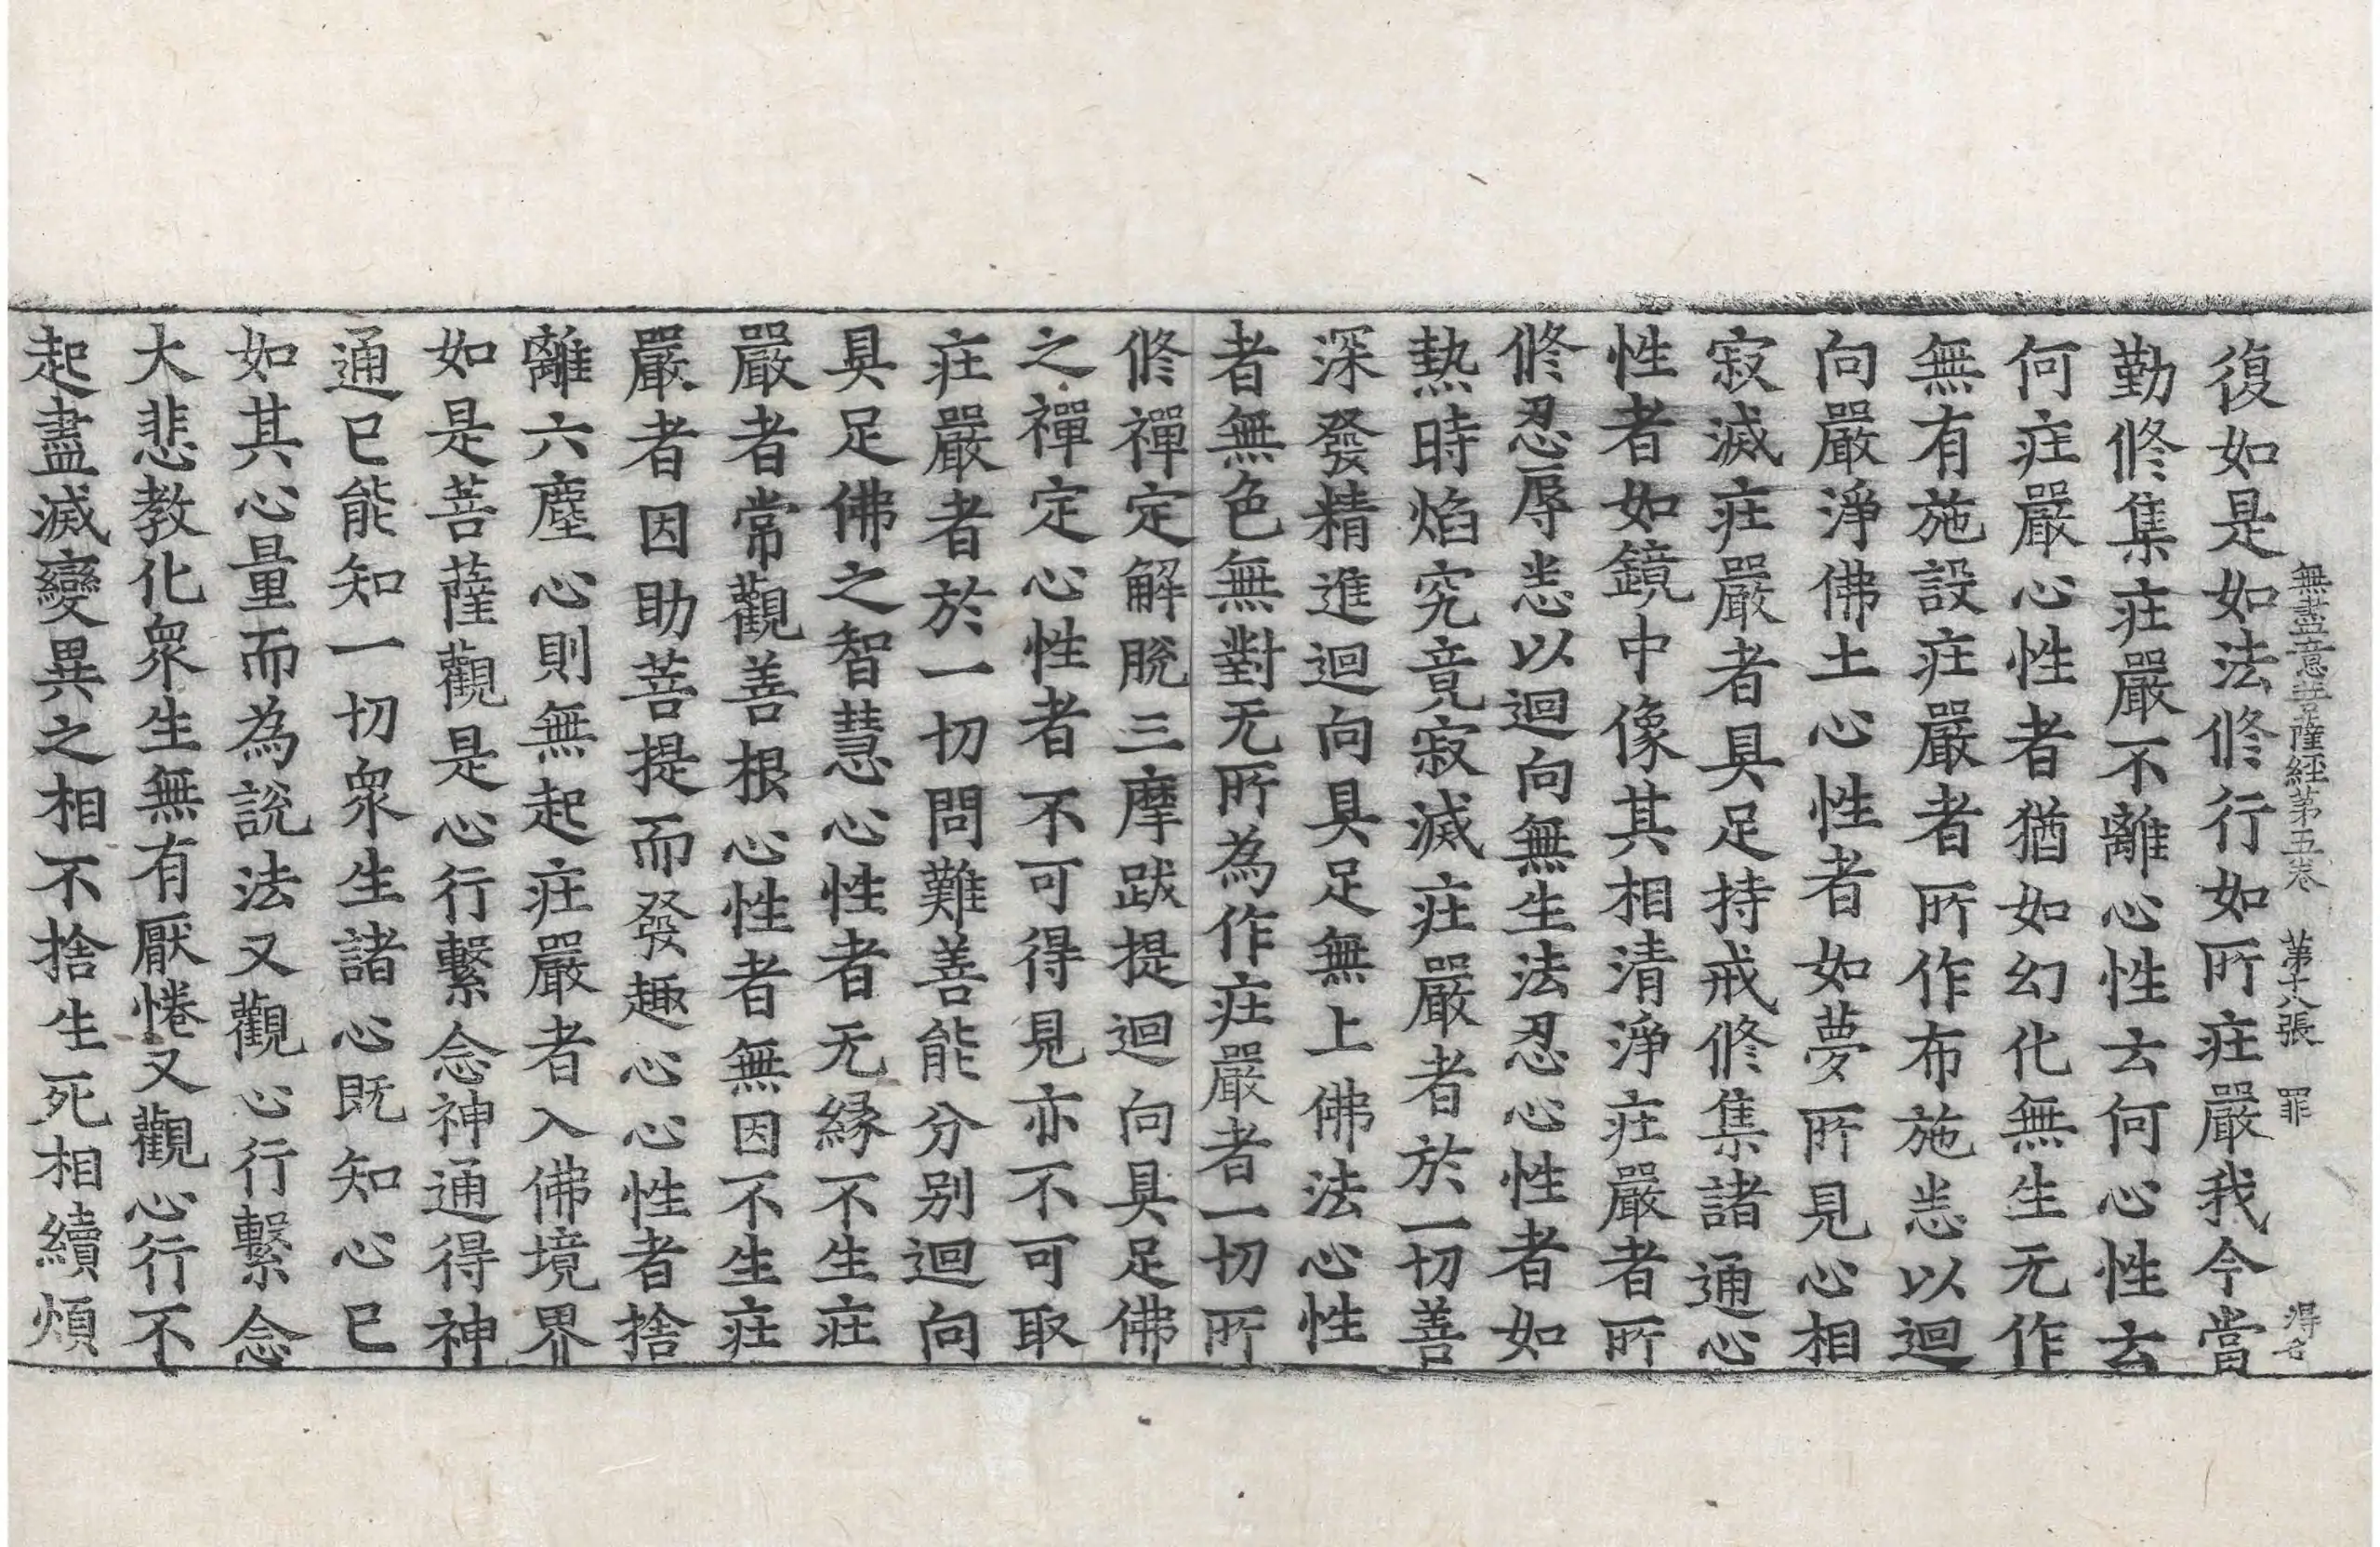 無盡意菩薩經第五卷 第十八張 罪 得名
復如是如法修行如所疘嚴我今當
勤修集疘嚴不離心性去何心性去
何疘嚴心性者猶如幻化無生无作
無有施設疘嚴者所作布施悉以迴
向嚴淨佛土心性者如夢所見心相
寂滅疘嚴者具足持戒修集諸通心
性者如鏡中像其相清淨疘嚴者所
修忍辱悉以迴向無生法忍心性者如
熱時焰究竟寂滅疘嚴者於一切善
深發精進迴向具足無上佛法心性
者無色無對无所為作疘嚴者一切所
修禪定解脫三摩跋提迴向具足佛
之禪定心性者不可得見亦不可取
疘嚴者於一切問難善能分別迴向
具足佛之智慧心性者无緣不生疘
嚴者常觀善根心性者無因不生疘
嚴者因助菩提而發趣心心性者捨
離六塵心則無起疘嚴者入佛境界
如是菩薩觀是心行繫念神通得神
通已能知一切衆生諸心既知心已
如其心量而為說法又觀心行繫念
大悲教化衆生無有厭惓又觀心行不
起盡滅變異之相不捨生死相續煩